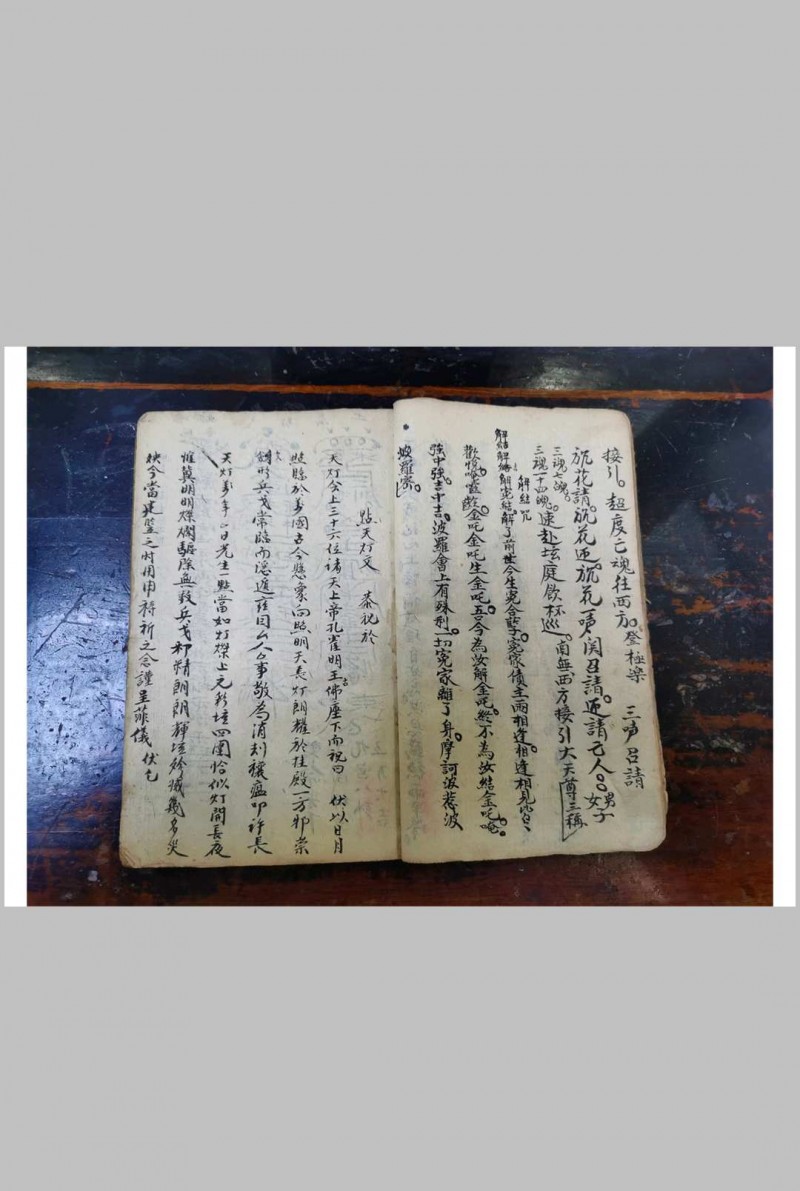 接引。超度亡魂往西方。登極樂 三声召請
旂花請。旂花迎。旂花声関召請。迎請亡人。男子女
三魂七魄。速赴坛庭飲杯巡。南無西方接引大天尊三稱
三魂一十四魄。
解結咒
解結解結解冤結。解了前世今生冤合孽。冤家債主兩相逢相逢相見
金吒金吒生金吒。吾今為汝解金吒。終不為汝結金吒。唵
強中強。吉中吉。波羅會上有殊利。一切冤家離了身。摩訶波惹波
波羅密。
點天灯文 恭祝於
天灯位上三十六位諸天上帝孔雀明王佛座下而祝曰 伏以日月
照臨於萬國古今懸象向照明天長灯朗耀於桂殿一方邪祟
兵戈常臨而隱遁 因厶人厶事敬為消刦穰瘟叩許長
天灯 年厶日先生一點當如灯 上元彩坛四圍恰似灯開長夜
惟冀明明燦爛驅除無数兵戈邪精朗朗輝坛 滅幾多災
殃今當建醮之时用申禱祈之念謹呈菲儀 伏乞